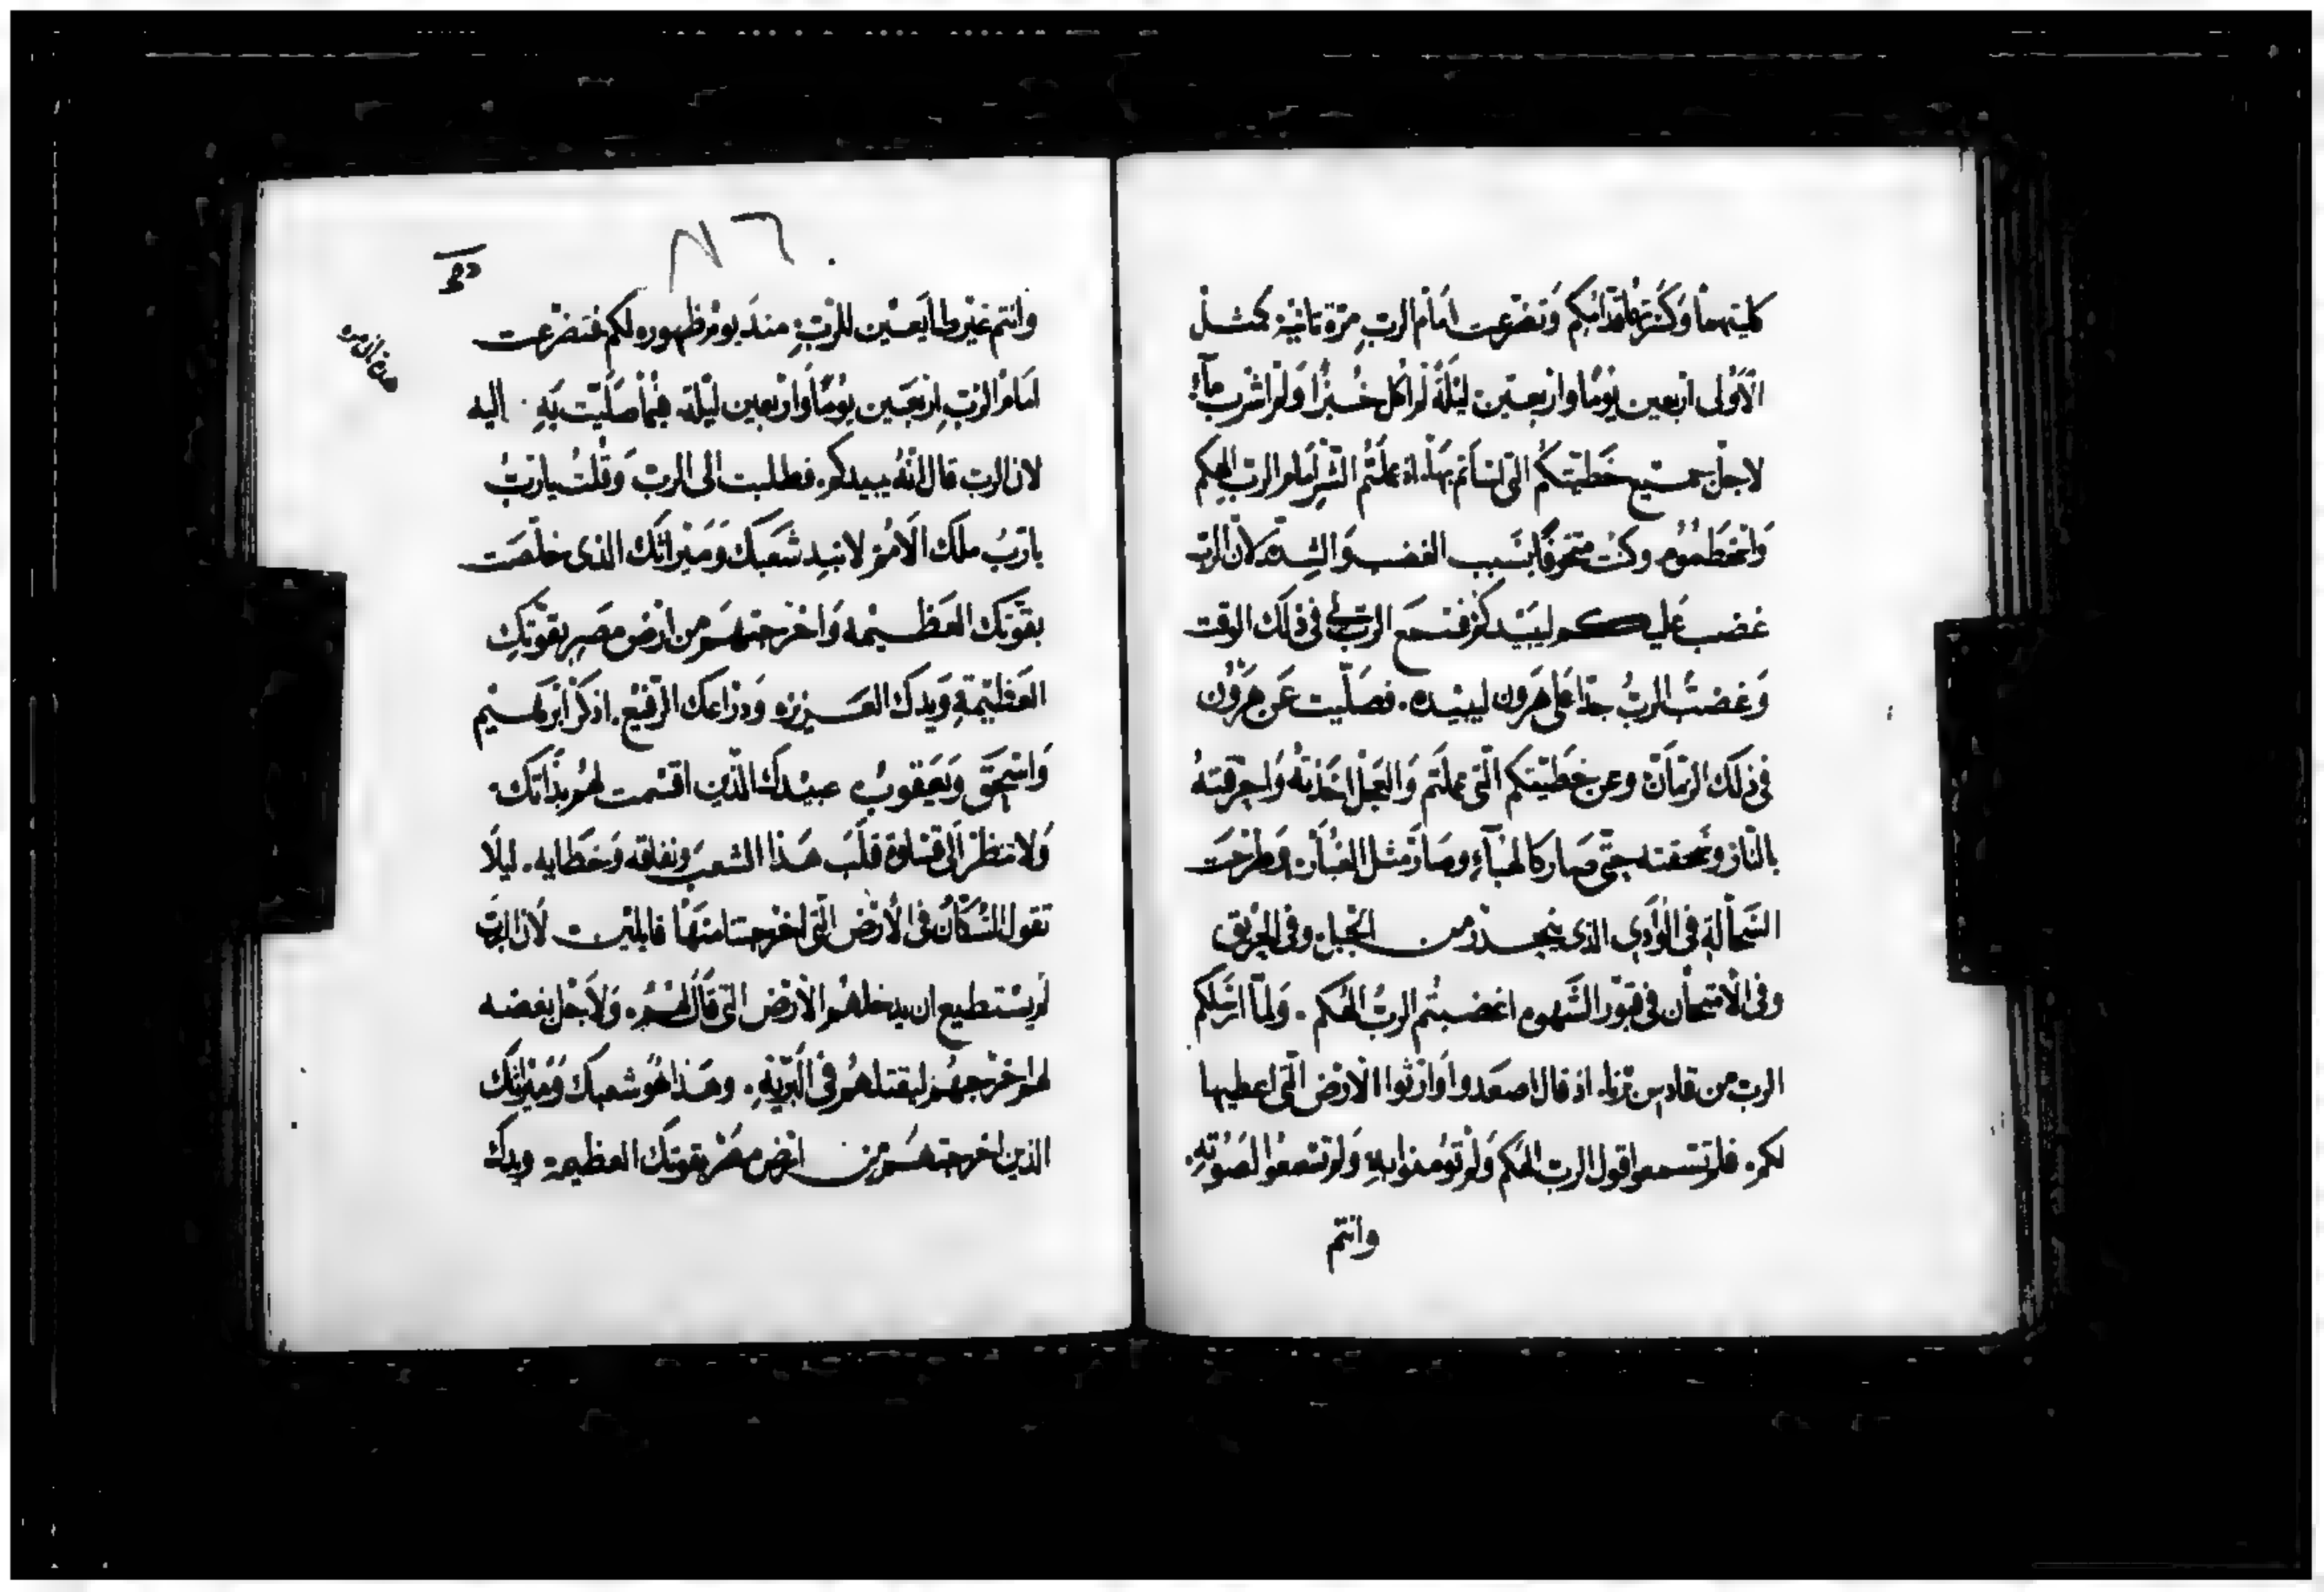 كليتهما وكسرتهما قدامكم وتضرعت امام الرب مرة ثانية كمثل
الاولى اربعين يوما واربعين ليلة لم اكل خبزا ولم اشرب مآء
لاجل جميع خطيتكم التى اسأتم بها اذ عملتم الشر امام الرب الهكم
واسخطتموه وكنت متخوفا بسبب الغضب والشدة لان الرب
غضب عليكم ليبيدكم فسمع الرب لى فى ذلك الوقت
وغضب الرب جدا على هرون ليبيده. فصليت عن هرون
فى ذلك الزمان وعن خطيتكم التى عملتم والعجل اخذته واحرقته
بالنار وسحقته حتى صار كالهبآء وصار مثل الغبار وطرحت
السحالة فى الوادى الذى ينحدر من الجبل وفى الحريق
وفى الامتحان فى قبور الشهوه اغضبتم الرب الهكم. ولما ارسلكم
الرب من قادس برنا. اذ قال اصعدوا وارثوا الارض التى اعطيها
لكم. فلم تسمعوا قول الرب الهكم ولم تومنوا به ولم تسمعوا لصوته.
وانتم
وانتم غير طايعين للرب منذ يوم ظهوره لكم فتضرعت
امام الرب اربعين يوما واربعين ليلة فيما صليت به اليه
لان الرب قال انه يبيدكم. فطلبت الى الرب وقلت يا رب
يا رب ملك الامم لا تبيد شعبك وميراثك الذى خلصت
بقوتك العظيمه واخرجتهم من ارض مصر بقوتك
العظيمة ويدك العزيزه وذراعك الرفيع. اذكر ابرهيم
واسحق ويعقوب عبيدك الذين اقسمت لهم بذاتك.
ولا تنظر الى قساوة قلب هذا الشعب ونفاقه وخطايه. ليلا
تقول السكان فى الارض التى اخرجتنا منها قايلين لان الرب
لم يستطيع ان يدخلهم الارض التى قال لهم. ولاجل بغضه
لهم اخرجهم ليقتلهم فى البرية. وهذا هو شعبك وميراثك
الذين اخرجتهم من ارض مصر بقوتك العظيمة ويدك